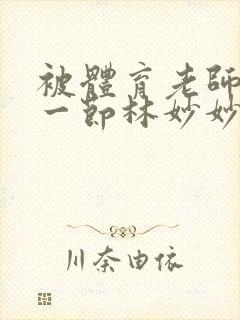 被體育老師
一節林妙妙
川奈由依